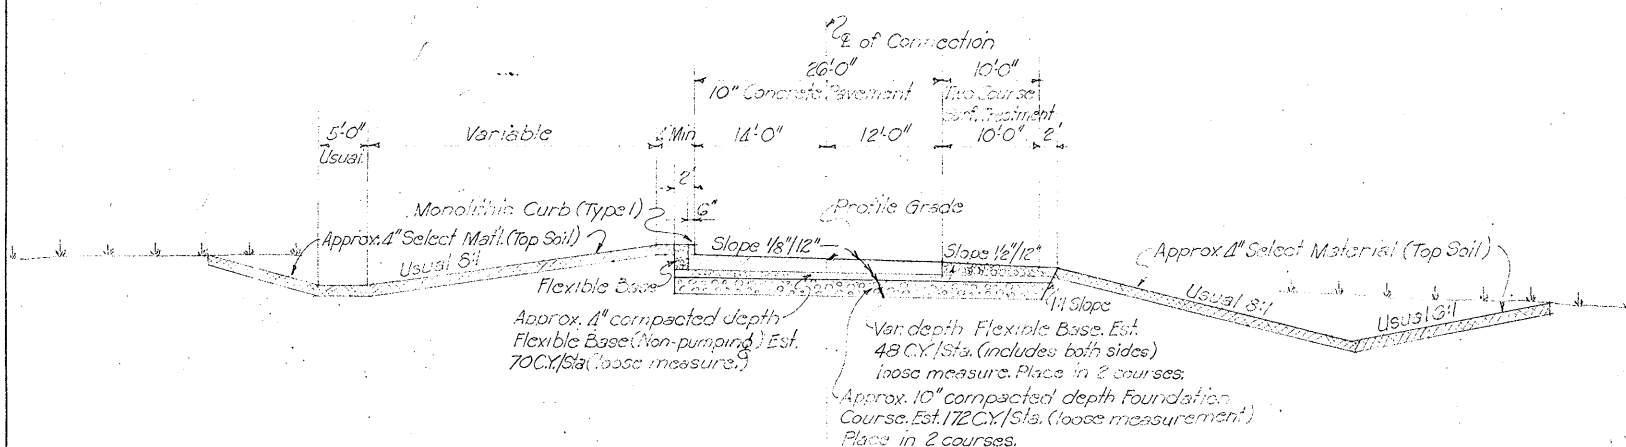 ℄ of Connection
26'-0"
10'-0"
10" Concrete Pavement
Two Course
Surf. Treatment
5'-0"
Variable
Min
14'-0"
12'-0"
10'-0"
2'
Usual
2'
Monolithic Curb (Type I)
6"
Profile Grade
Approx. 4" Select Mat'l. (Top Soil)
Slope 1/8"/12"
Slope 1/2"/12"
Approx. 4" Select Material (Top Soil)
Usual 8:1
Flexible Base
1:1 Slope
Usual 8:1
Usual 6:1
Approx. 4" compacted depth
Flexible Base (Non-pumping) Est.
70 C.Y./Sta (loose measure.)
Var. depth Flexible Base. Est.
48 C.Y./Sta. (includes both sides)
loose measure. Place in 2 courses.
Approx. 10" compacted depth Foundation
Course. Est. 172 C.Y./Sta. (loose measurement)
Place in 2 courses.